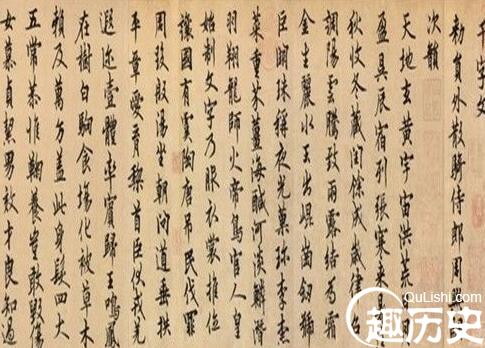 千字文
勅員外散騎侍郎周
次韻
天地玄黃宇宙洪荒日
盈昃辰宿列張寒來暑
秋收冬藏閏餘成歲律呂
調陽雲騰致雨露結為霜
金生麗水玉出崐崗劒號
巨闕珠稱夜光菓珎李柰
菜重芥薑海鹹河淡鱗潛
羽翔龍師火帝鳥官人皇
始制文字乃服衣裳推位
讓國有虞陶唐吊民伐罪
周發殷湯坐朝問道垂拱
平章愛育黎首臣伏戎羌
遐迩壹體率賓歸王鳴鳳
在樹白駒食場化被草木
賴及萬方盖此身髮四大
五常恭惟鞠養豈敢毀傷
女慕貞潔男效才良知過
QuLishi.com
趣历史